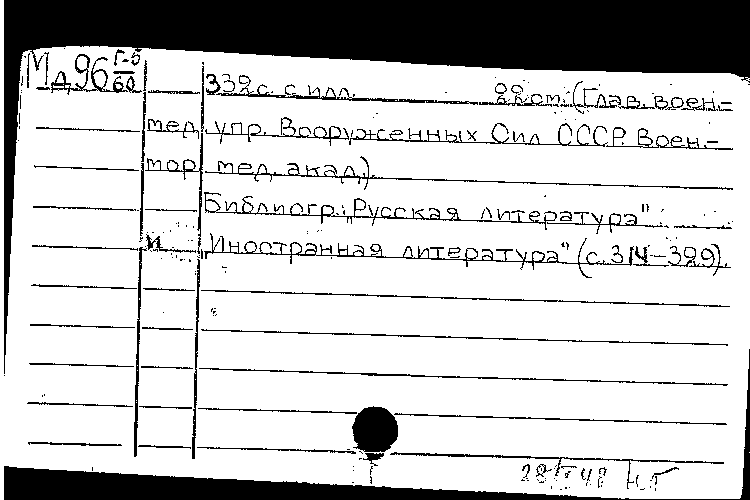 Мд96 Г-5/60
332 с. с илл. 22 см. (Глав. воен.-
мед. упр. Вооруженных Сил СССР. Воен.-
мор. мед. акад.).
Библиогр.: „Русская литература"
и „Иностранная литература" (с. 314-329).
28/I 48